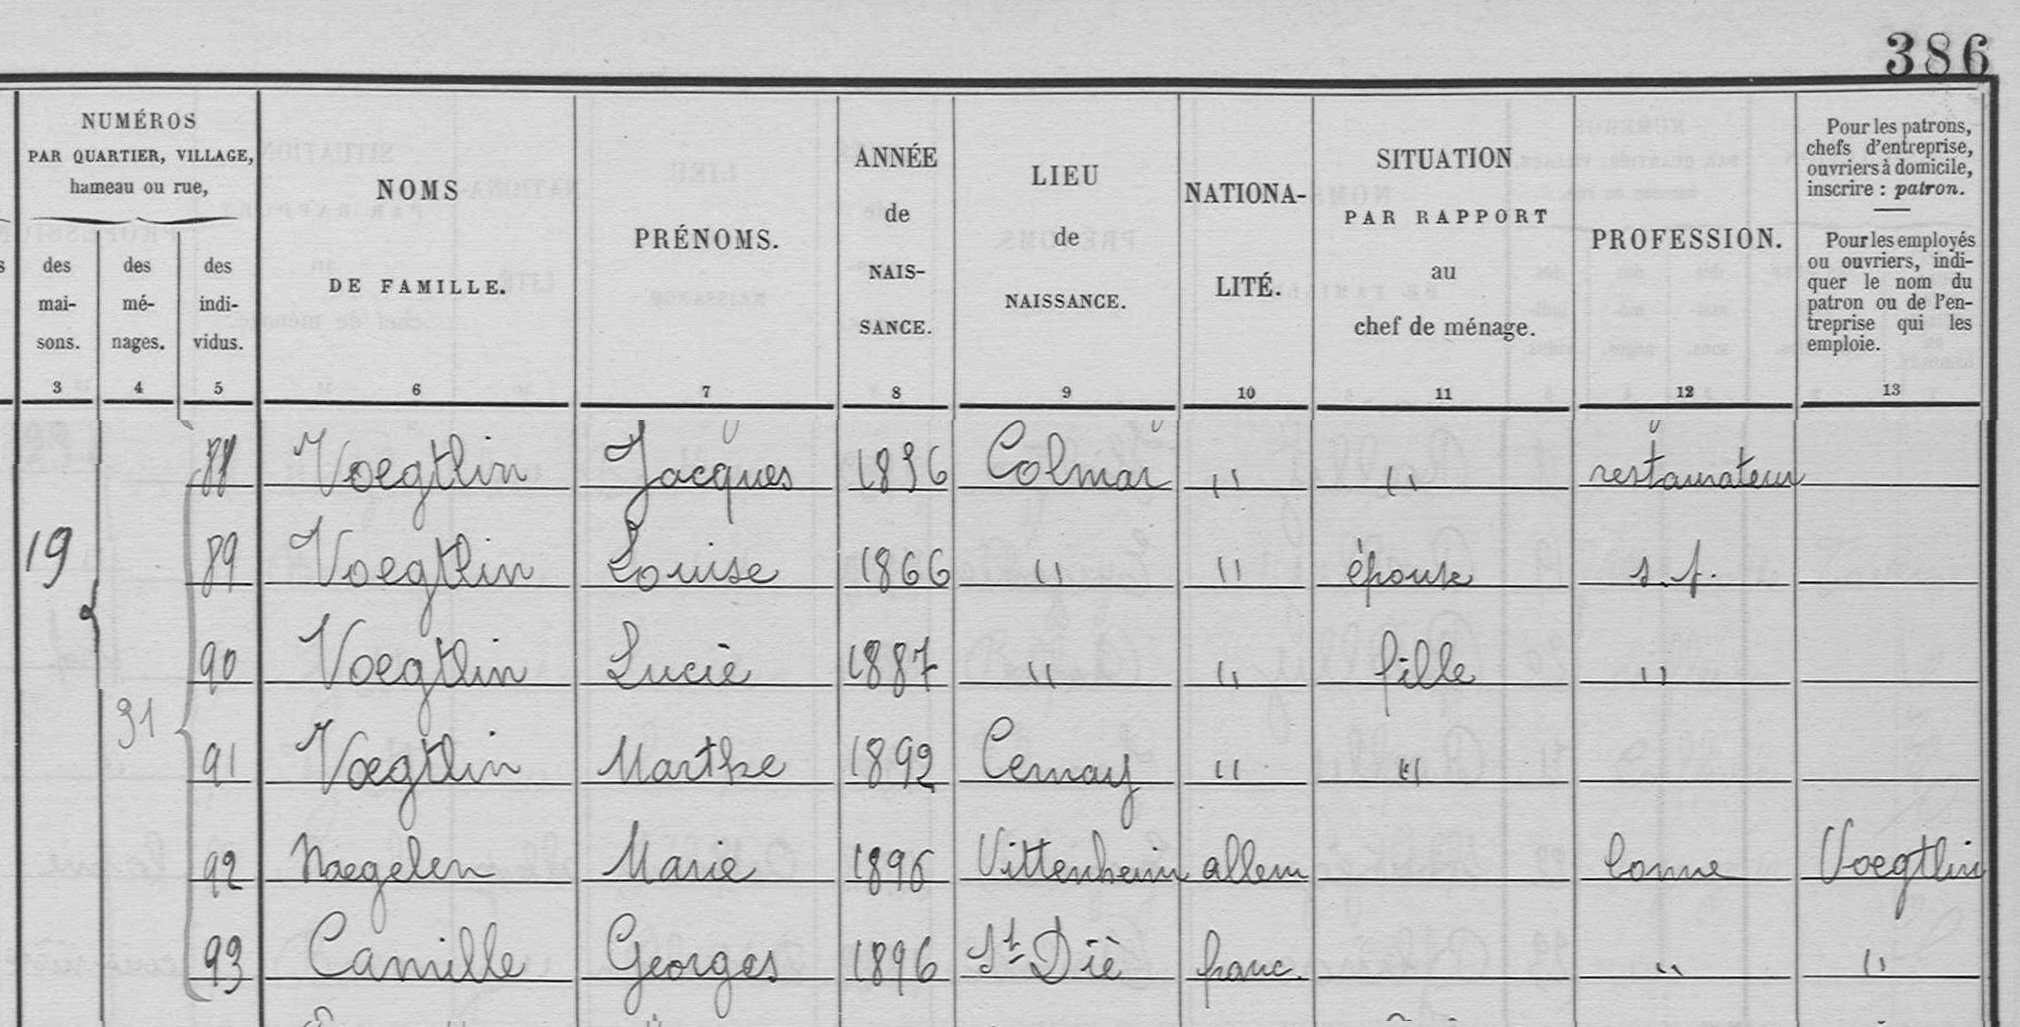 386
NUMÉROS
PAR QUARTIER, VILLAGE,
hameau ou rue,
des maisons.
des ménages.
des individus.
NOMS
DE FAMILLE.
PRÉNOMS.
ANNÉE
de
NAIS-
SANCE.
LIEU
de
NAISSANCE.
NATIONA-
LITÉ.
SITUATION
PAR RAPPORT
au
chef de ménage.
PROFESSION.
Pour les patrons,
chefs d'entreprise,
ouvriers à domicile,
inscrire : patron.
Pour les employés
ou ouvriers, indi-
quer le nom du
patron ou de l'en-
treprise qui les
emploie.
3 4 5 6 7 8 9 10 11 12 13
88 Voegtlin Jacques 1856 Colmar " " restaurateur
19
89 Voegtlin Louise 1866 " " épouse s.p.
90 Voegtlin Lucie 1887 " " fille "
31
91 Voegtlin Marthe 1892 Cernay " "
92 Naegelen Marie 1896 Vittenheim allem bonne Voegtlin
93 Camille Georges 1896 St Dié franc. " "